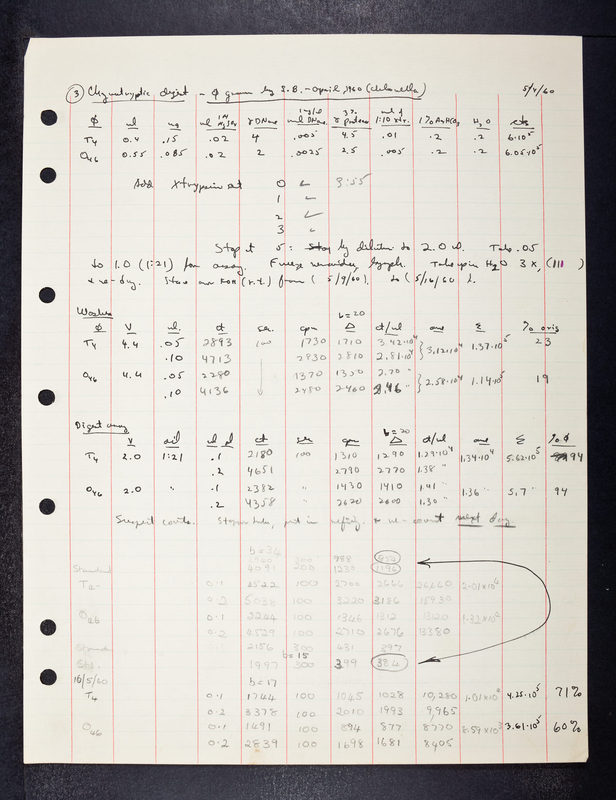 ③ Chymotryptic digest - φ grown by S.B. - April, 1960 (chlorella) 5/4/60
φ ml ug ml γ DNase ml DNase γ ml of 1:10 1% H2O cts
T4 0.4 .15 .02 4 .005 4.5 .01 .2 .2 6·10⁵
O46 0.55 .085 .02 2 .0025 2.5 .005 .2 .2 6.05·10⁵
Add Xtrypsin at 0 9:55
1
2
3
Stop at 5: by dilution to 2.0 ml. Take .05
to 1.0 (1:21) for assay. Freeze remainder, lyoph. Take up in H2O 3 x, (111 )
& re-dry. Store over KOH (r.t.) from ( 5/9/60). to ( 5/16/60 ).
Washes
φ V ml. ct sec. cpm Δ ct/ml ave Σ % orig
b=20
T4 4.4 .05 2893 100 1730 1710 3.42·10⁴ 3.12·10⁴ 1.37·10⁵ 23
.10 4713 2830 2810 2.81·10⁴
O46 4.4 .05 2280 1370 1350 2.70 " 2.58·10⁴ 1.14·10⁵ 19
.10 4136 2480 2460 2.46 "
Digest assay
b=20
V dil ml pl ct sec cpm Δ ct/ml ave Σ % φ
T4 2.0 1:21 .1 2180 100 1310 1290 1.29·10⁴ 1.34·10⁴ 5.62·10⁵ 94
.2 4651 2790 2770 1.38 "
O46 2.0 " .1 2382 " 1430 1410 1.41 " 1.36 " 5.7 " 94
.2 4358 " 2620 2600 1.30 "
Suspect counts. in refrig. & re-count next day
b=34
300 888
Standard 4091 200 1230 1196
T4 0.1 2522 100 2700 2666 26660 2.01×10⁴
0.2 5038 100 3220 3186 15930
O46 0.1 2244 100 1346 1312 13120
0.2 4529 100 2710 2676 13380
2156 300 431 397
b=15
Std. 1997 300 399 384
16/5/60 b=17
T4 0.1 1744 100 1045 1028 10,280 1.01×10⁴ 4.25·10⁵ 71%
0.2 3378 100 2010 1993 9,965
O46 0.1 1491 100 894 877 8770 8.59×10³ 3.61·10⁵ 60%
0.2 2839 100 1698 1681 8405